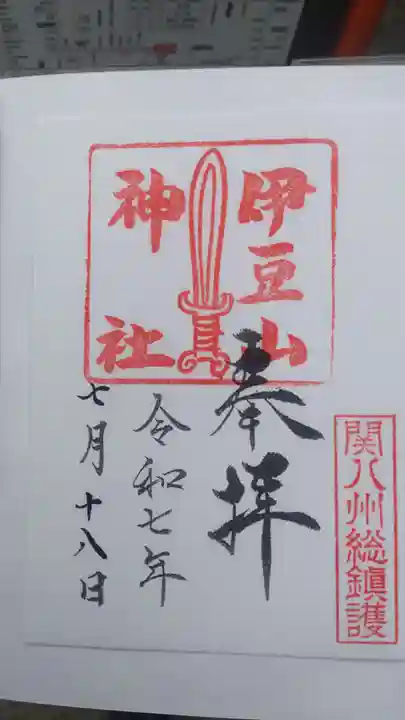 関八州総鎮護
伊豆山
神社
奉拝
令和七年
七月十八日